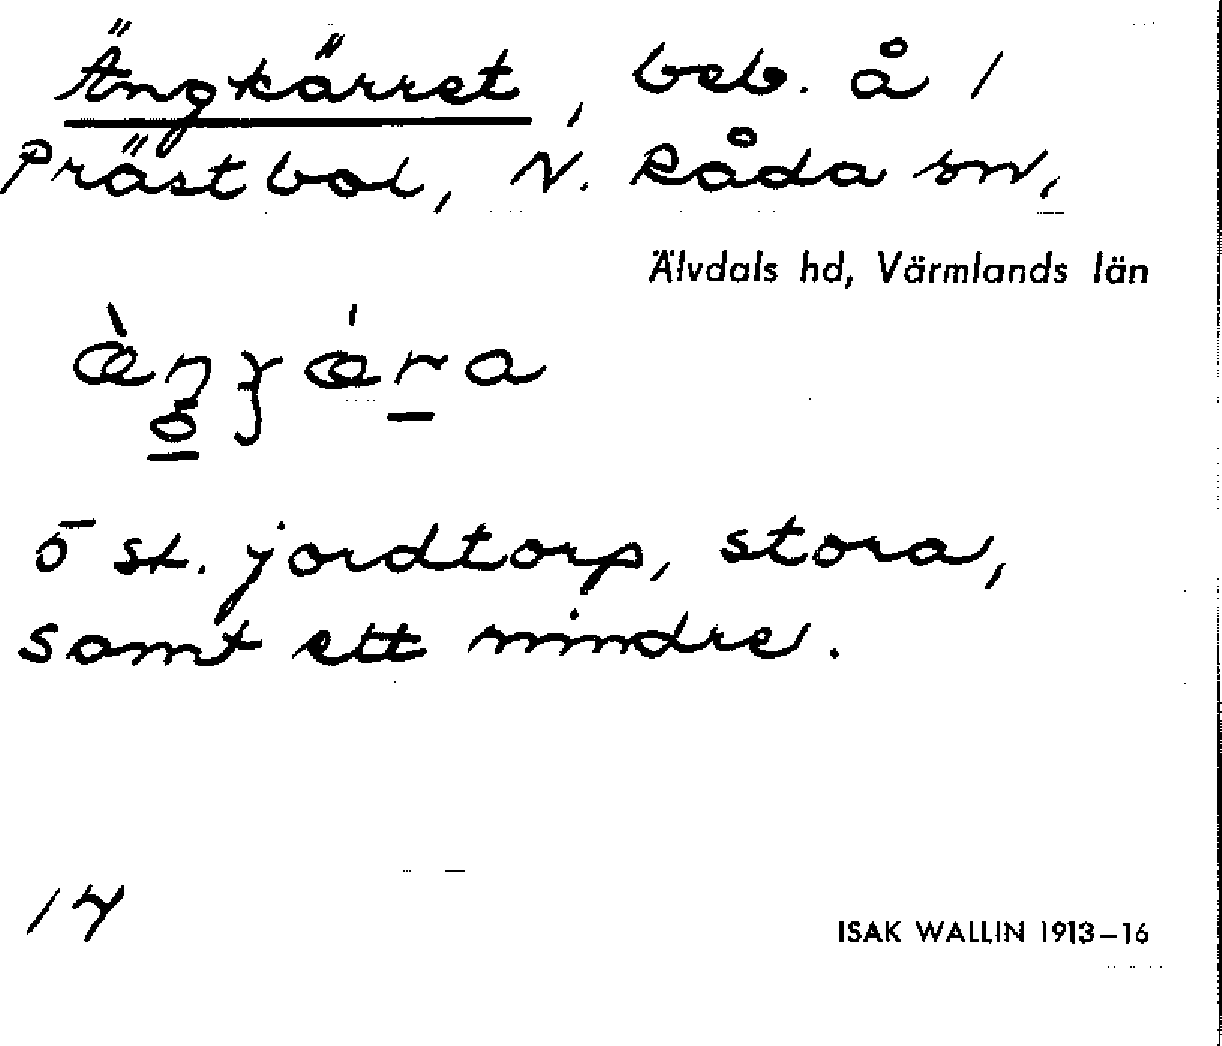 Ängkärret, beb. å /
Prästbol, N. Råda sn,
Älvdals hd, Värmlands län
5 st. jordtorp, stora,
samt ett mindre.
14
ISAK WALLIN 1913–16